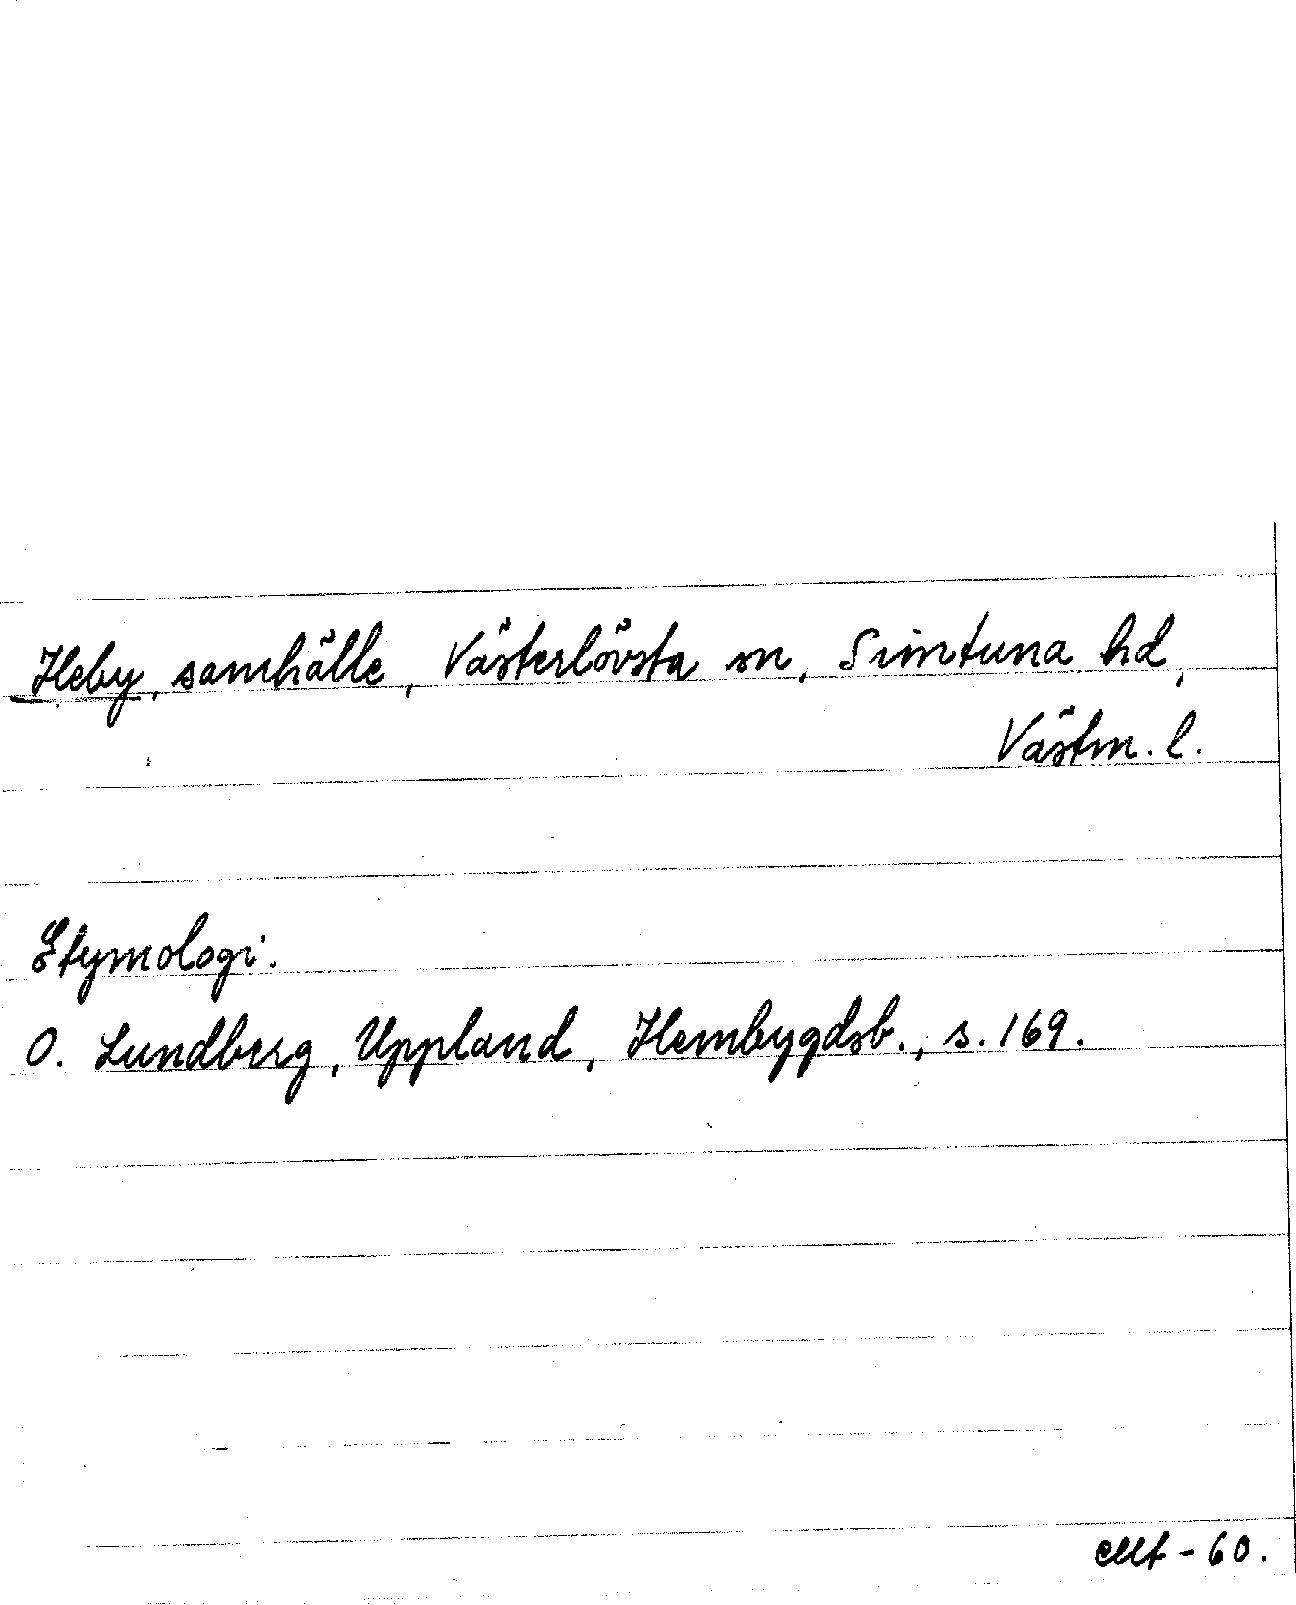 Heby, samhälle, Västerlövsta sn, Simtuna hd,
Västm. l.
Etymologi.
O. Lundberg, Uppland, Hembygdsb., s. 169.
- 60.